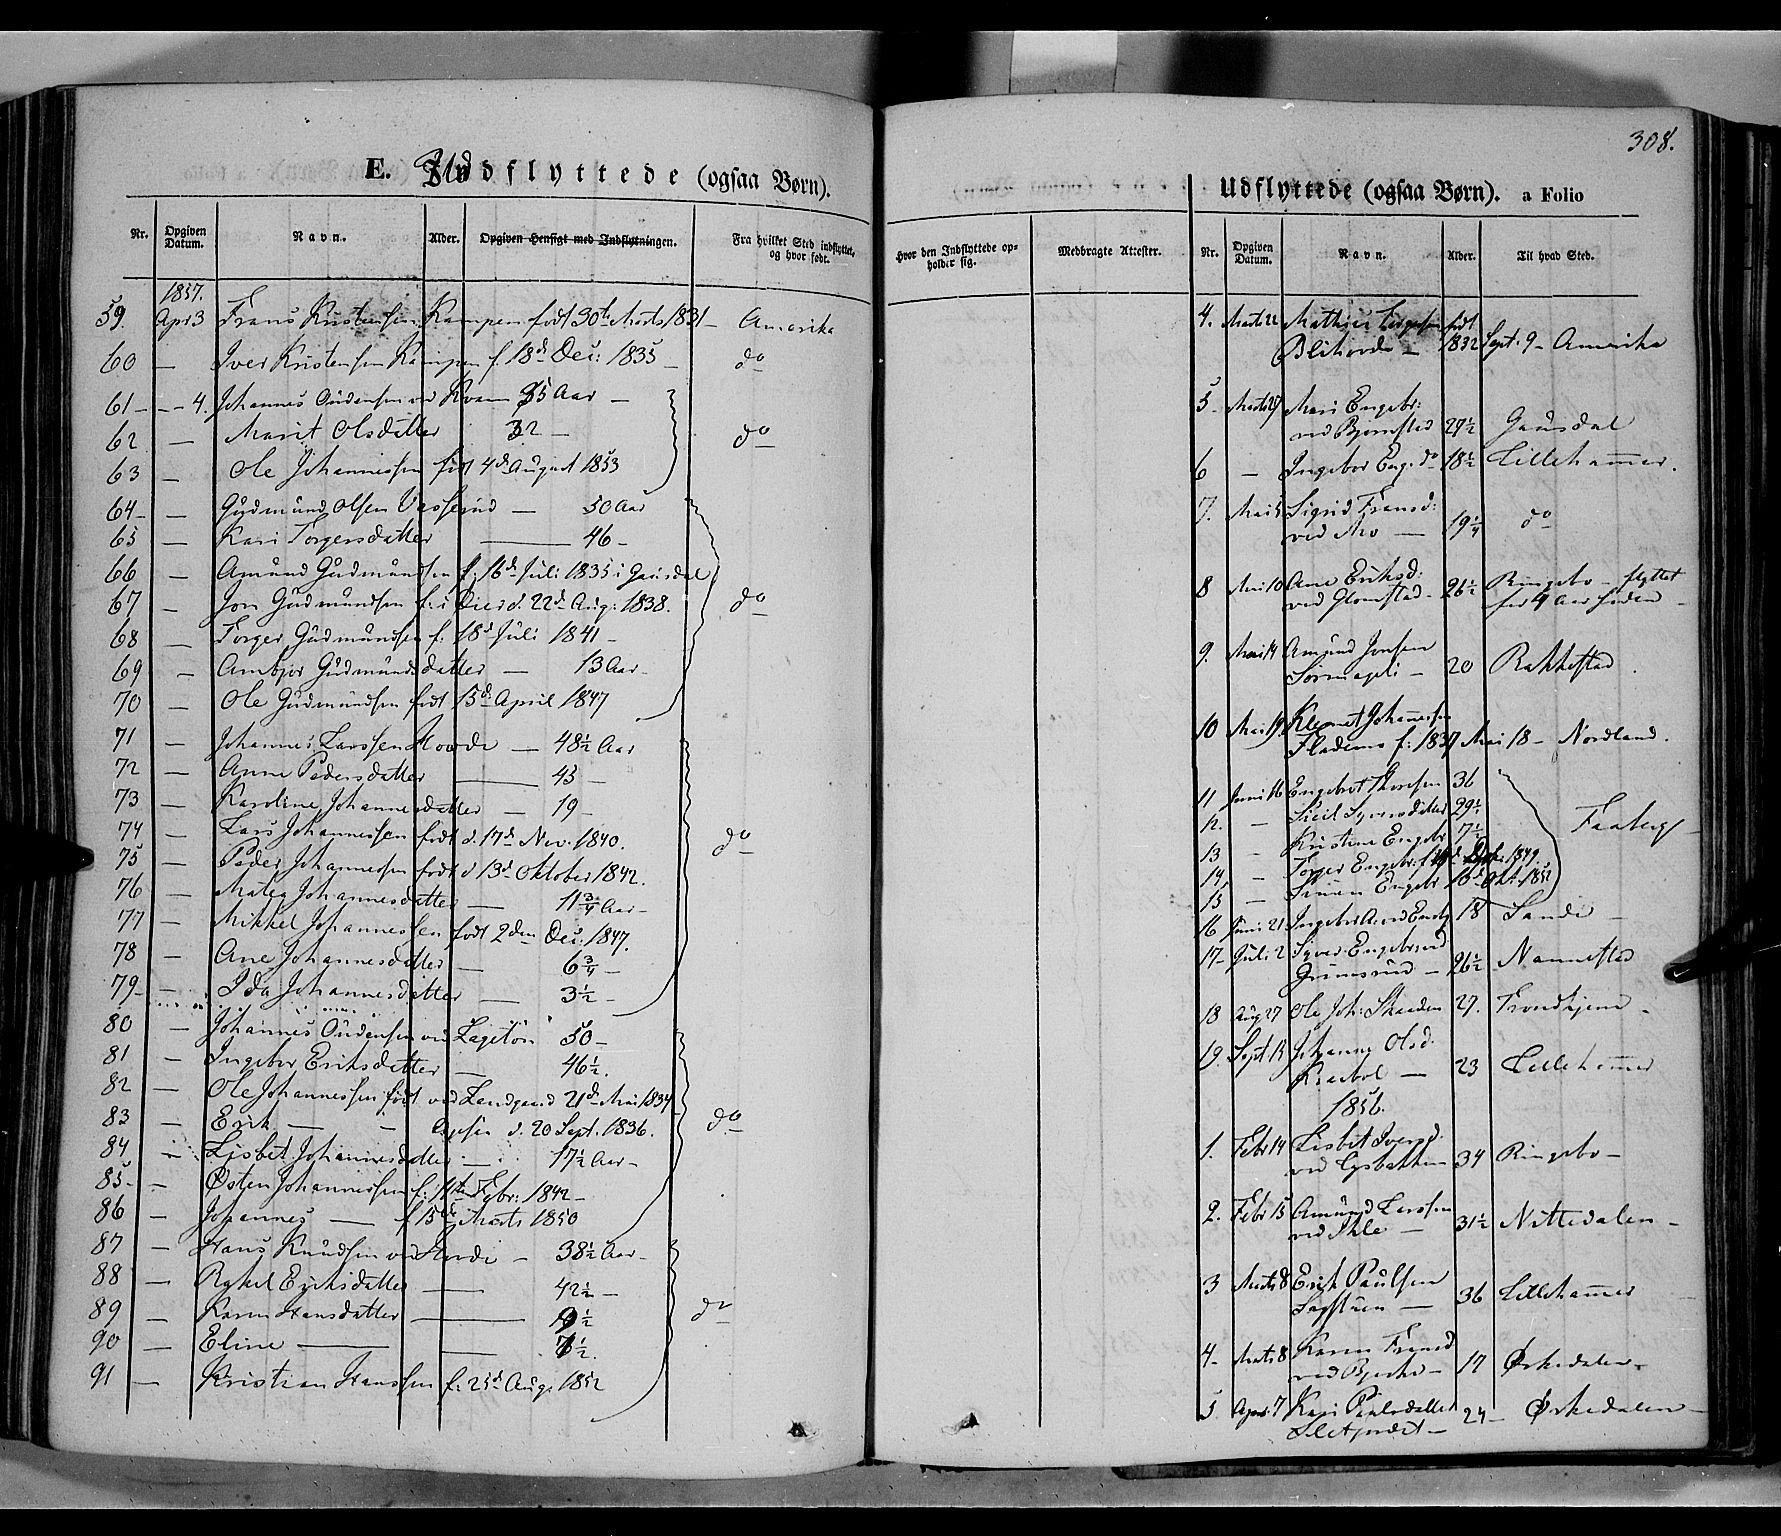 308.
E. Udflyttede (ogsaa Børn).
Nr. Opgiven Datum. Navn. Alder. Opgiven Hensigt med Indflytningen. Fra hvilket Sted indflyttet, og hvor født.
1857.
59. Apr 3 Frans Kristensen Kampen født 30te Marts 1831 - Amerika
60 — Iver Kristensen Kampen f. 18de Dec: 1835 — do
61 — - 4. Johannes Oudensen ved Kvam 35 Aar —
62 — Marit Olsdatter 32 — do
63 — Ole Johannessen født 4de August 1853
64 — Gudmund Olsen — 50 Aar
65 — Kari Torgersdatter — 46 —
66 — Amund Gudmundsen f. 16de Juli 1835 i Gausdal
67 — Jon Gudmundsen f. i Øier d. 22de Aug: 1838. do
68 — Torger Gudmundsen f. 18de Juli 1841 —
69 — Ambjør Gudmundsdatter — 13 Aar —
70 — Ole Gudmundsen født 15de April 1847
71 — Johannes Larssen Howde — 48½ Aar
72 — Anne Pedersdatter — 45 —
73 — Karoline Johannesdatter — 19 —
74 — Lars Johannessen født d. 17de Nov. 1840. do
75 — Peder Johannessen født d 13de Oktober 1842.
76 — Mathea Johannesdatter — 11¾ Aar —
77 — Mikkel Johannessen født 2den Dec: 1847.
78 — Ane Johannesdatter — 6¾ —
79 — Ida Johannesdatter — 3½ —
80 — Johannes Oudensen ved 50 —
81 — Ingebor Eriksdatter — 46½.
82 — Ole Johannessen født ved Landgaard 21de Mai 1834
83 — Erik — d. 20 Sept. 1836. do
84 — Lisbet Johannesdatter — 17½ Aar —
85 — Østen Johannessen f. 11te Febr: 1842 —
86 — Johannes — f 15de Marts 1850
87 — Hans Knudsen ved Hovde — 38½ Aar —
88 — Rakel Eriksdatter — 42½ —
89 — Karen Hansdatter — 9½ do
90 — Eline — 7½.
91 — Kristian Hanssen f. 25de Aug: 1852
Hvor den Indflyttede opholder sig. Medbragte Attester.
Udflyttede (ogsaa Børn). a Folio
Nr. Opgiven Datum. Navn. Alder. Til hvad Sted.
4. Marts 22 Mathias født
1832 Sept. 9 — Amerika
5 Marts 27 Mari Engebr:
ved Bjørnstad 29½ Gausdal
6 — Ingebor Eng. do 18½ Lillehammer.
7. Mai 5 Sigrid Fransd:
ved Mo — 19¼ do
8 Mai 10 Ane Eriksd:
ved Glomstad — 26½ Ringebo — flyttet
for 4 Aar siden —
9. Mai 14 Amund Jonsen
20 Rakkestad.
10 Mai 19 Klemet Johannessen
f: 1837 Mai 18 — Nordland.
11 Juni 16 Engebret Thoresen 36
12. — Sicil Syversdatter 29½
13 — Kristine Engebr 7½ Faaberg —
14 — Torger Engebr: 1849.
15 — Simen Engebr 10de Okt. 1852
16 Juni 21 Ingebor 18 Sande —
17 — Juli 2 Syver Engebr: ved
Grimsrud — 26½ Nannestad
18 Aug 27 Ole Joh: Skaaden 27. Trondhjem —
19. Sept 13 Johanne Olsd.
23 Lillehammer
1856.
1. Febr 14 Lisbet Iversd.
ved 34 Ringebo —
2. Febr 15 Amund Larssen
ved — 31½ Nittedalen —
3 Marts 8 Erik Paulsen
Sagstuen — 36 Lillehammer
4 — Marts 8 Karen Fransd
ved Bjerke — 17 Ørkedalen —
5 Apr. 7 Kari Paulsdatter
24 — Ørkedalen —